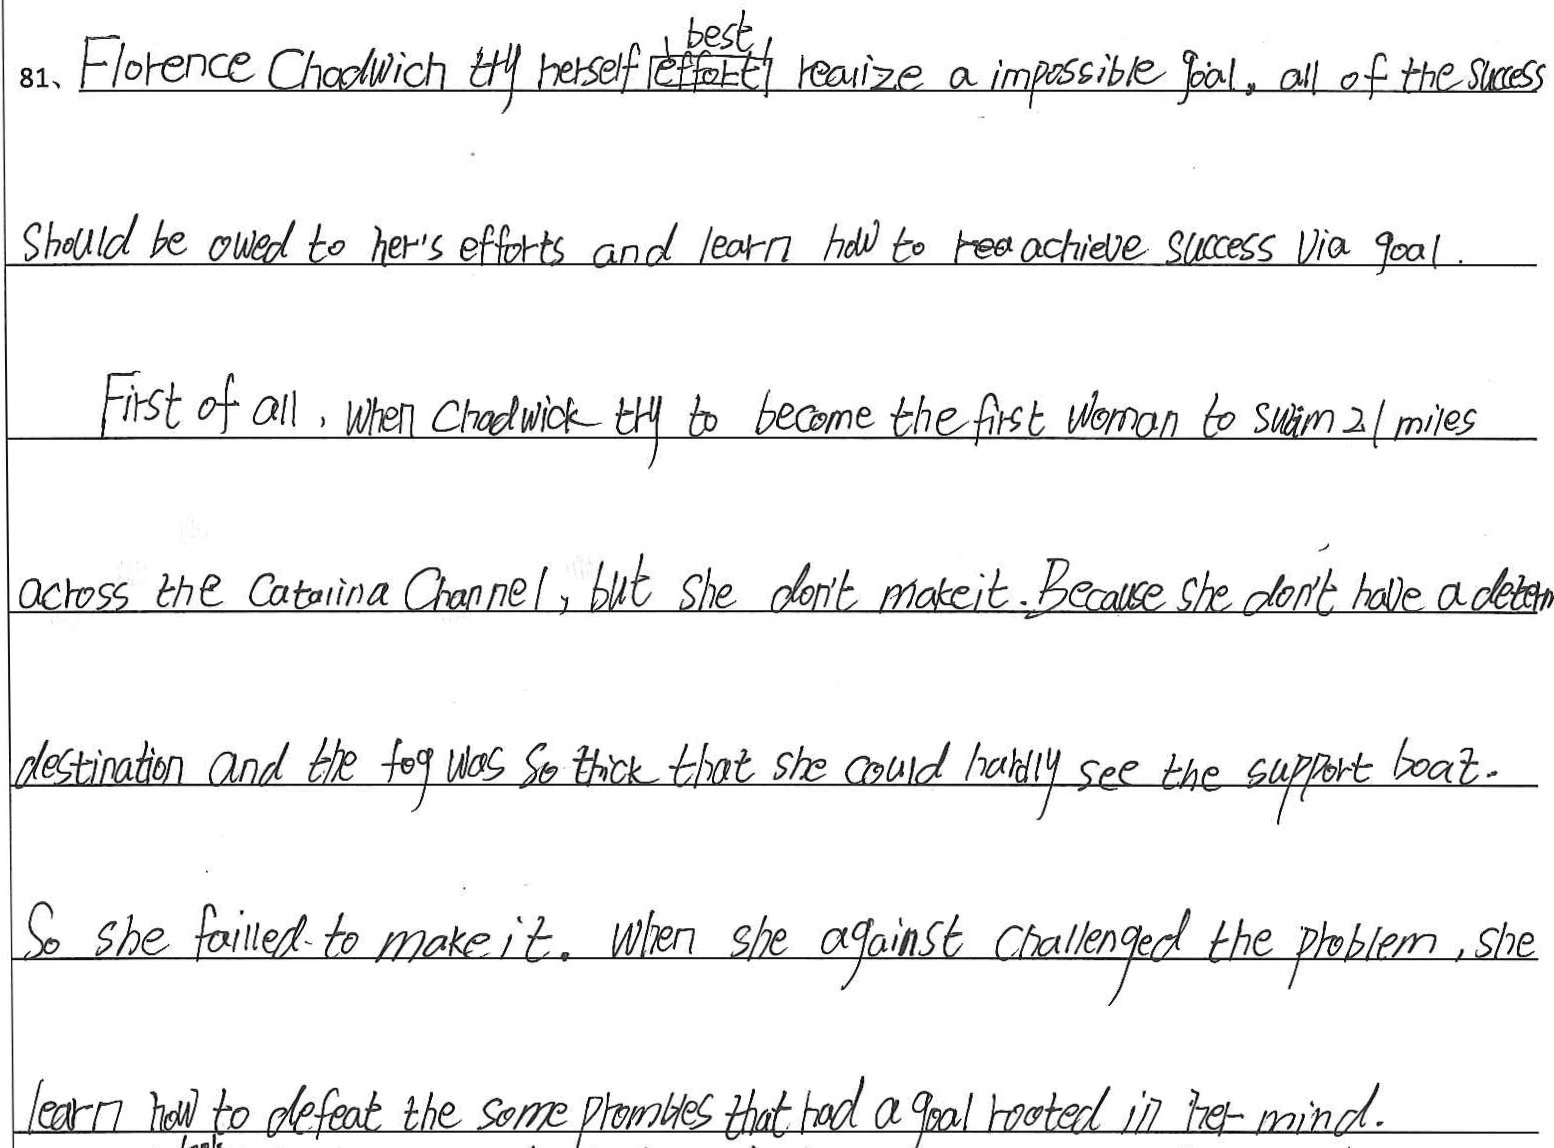 81、Florence Chadwich try herself best realize a impossible goal, all of the success
should be owed to her's efforts and learn how to achieve success via goal.
First of all, when Chadwick try to become the first woman to swim 21 miles
across the Catalina Channel, but she don't make it. Because she don't have a determ
destination and the fog was so thick that she could hardly see the support boat.
So she failled to make it. When she against challenged the problem, she
learn how to defeat the some prombles that had a goal rooted in her mind.